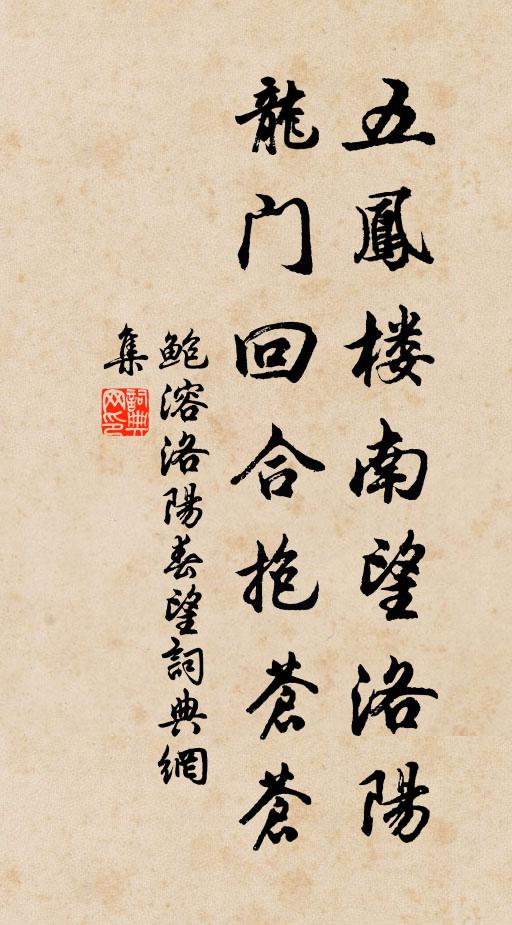 五鳳楼南望洛陽
龍门回合抱蒼蒼
鲍溶洛陽春望詞典網
集
詞典
网印